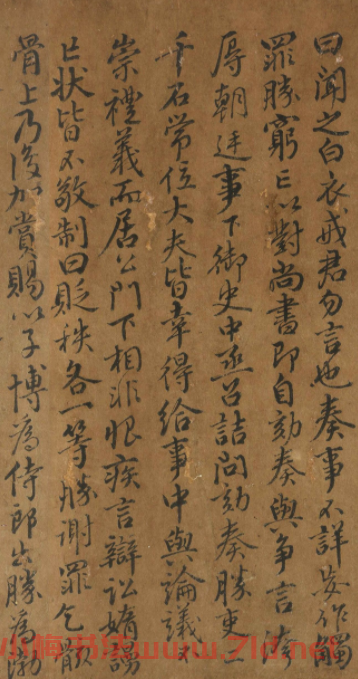 曰聞之白衣戒君勿言也奏事不詳妄作觸
罪勝窮亡以對尚書即自劾奏與爭言洿
辱朝廷事下御史中丞召詰問劾奏勝吏二
千石常位大夫皆幸得給事中與論議不
崇禮義而居公門下相非恨疾言辯訟媠謾
亡狀皆不敬制曰貶秩各一等勝謝罪乞骸
骨上乃復加賞賜以子博為侍郎出勝為渤
小梅书法www.7ld.net